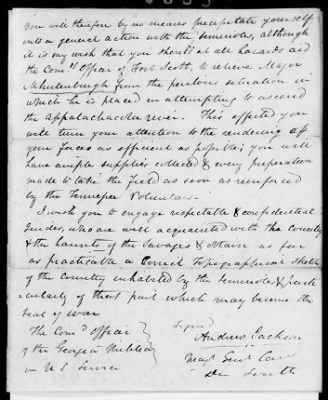 you will therefore by no means precipitate yourself
into a general action with the seminoles, although
it is my wish that you should at all hazards aid
the Comg Officer of Fort Scott, to relieve Major
Muhlenburgh from the perilous situation in
which he is placed in attempting to ascend
the Appalachacolla river. This effected you
will turn your attention to the rendering of
your forces as efficient as possible; you will
have ample supplies collected & every preparation
made to take the field as soon as reinforced
by the Tennessee Volunteers.
I wish you to engage respectable & confidential
Guides, who are well acquainted with the Country
& the haunts of the Savages & obtain as far
as practicable a Correct Topographical Sketch
of the Country inhabited by the Seminoles & parti
cularly of that part which may become the
seat of war
Signed
The Comg Officer
of the Georgia Militia
in U.S. Service
Andrew Jackson
Majr Genl Com
Dn South